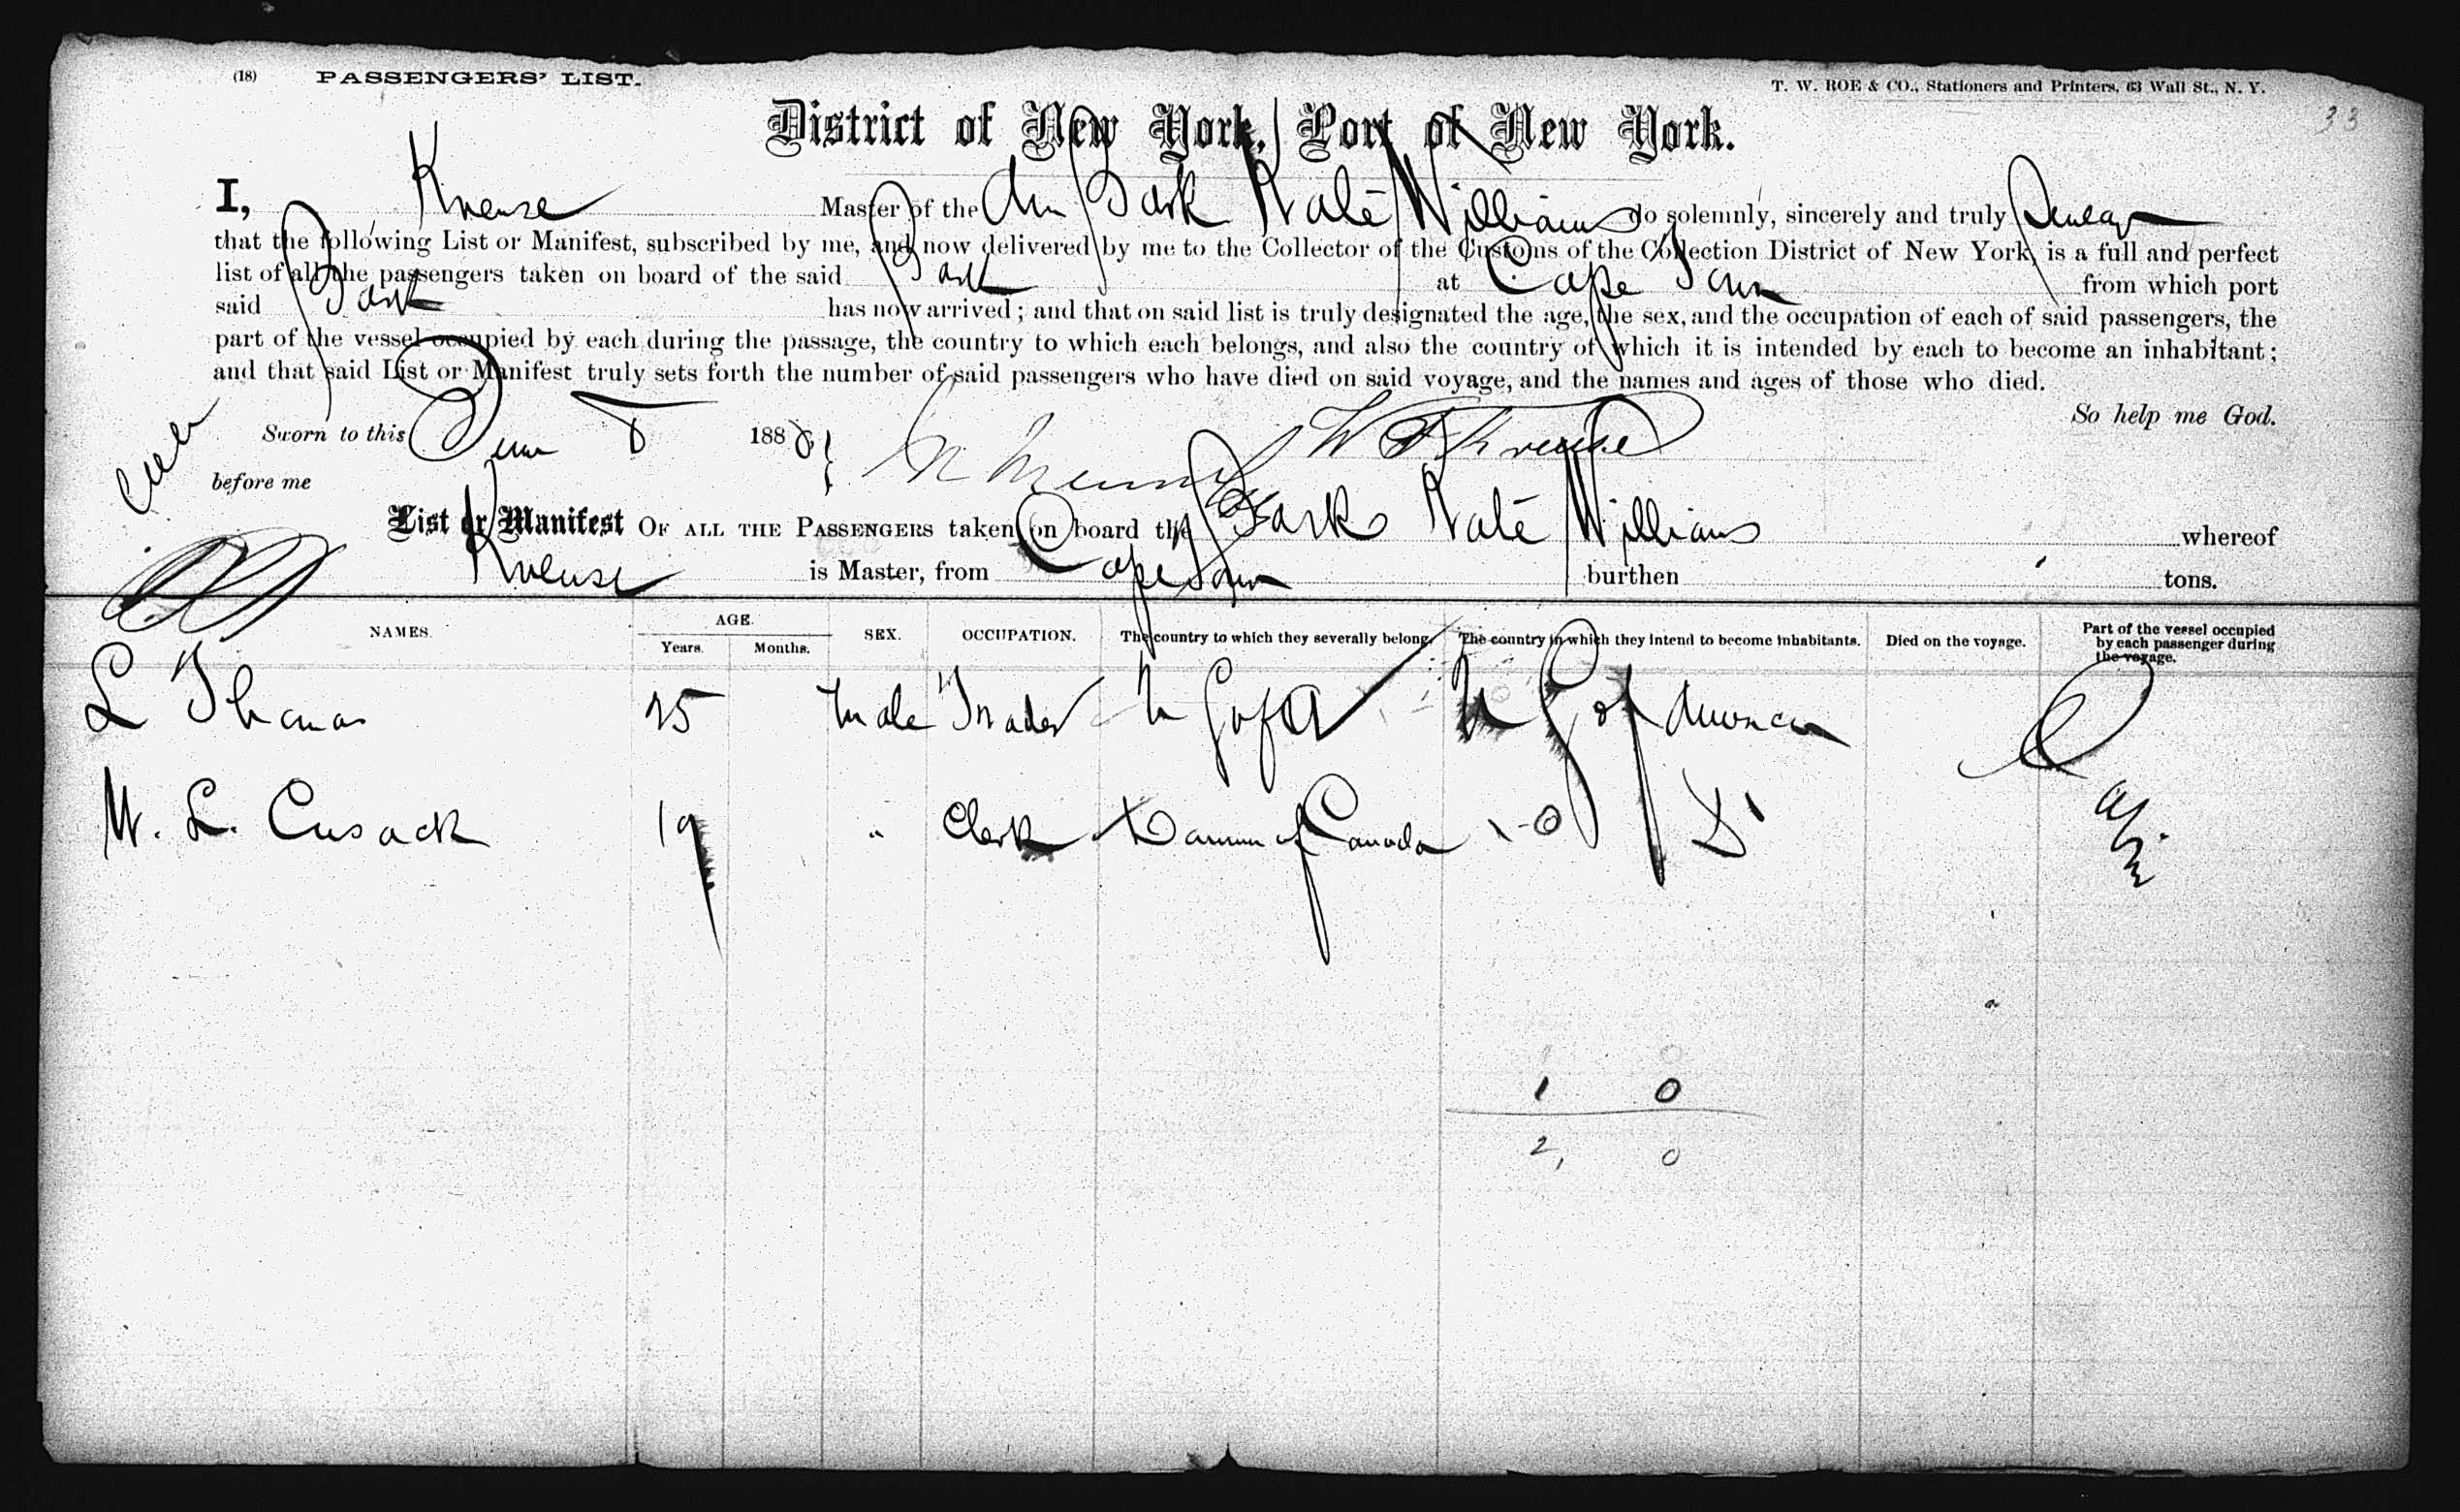 (18) PASSENGERS' LIST. T. W. ROE & CO., Stationers and Printers, 63 Wall St., N. Y.
33
District of New York, Port of New York.
I, Kreuse Master of the Am Bark Kate Williams do solemnly, sincerely and truly Swear
that the following List or Manifest, subscribed by me, and now delivered by me to the Collector of the Customs of the Collection District of New York, is a full and perfect
list of all the passengers taken on board of the said Bark at Cape Town from which port
said Bark has now arrived; and that on said list is truly designated the age, the sex, and the occupation of each of said passengers, the
part of the vessel occupied by each during the passage, the country to which each belongs, and also the country of which it is intended by each to become an inhabitant;
and that said List or Manifest truly sets forth the number of said passengers who have died on said voyage, and the names and ages of those who died.
So help me God.
Sworn to this June 8 1888 W F Kreuse
before me
List or Manifest OF ALL THE PASSENGERS taken on board the Bark Kate Williams whereof
Kreuse is Master, from Cape Town burthen tons.
NAMES. AGE. Years. Months. SEX. OCCUPATION. The country to which they severally belong. The country in which they intend to become inhabitants. Died on the voyage. Part of the vessel occupied by each passenger during the voyage.
L Thomas 25 Male Trader U S of A U S of America Cabin
W. L. Cusack 19 " Clerk Domin of Canada 1-0 Do
1 0
2, 0